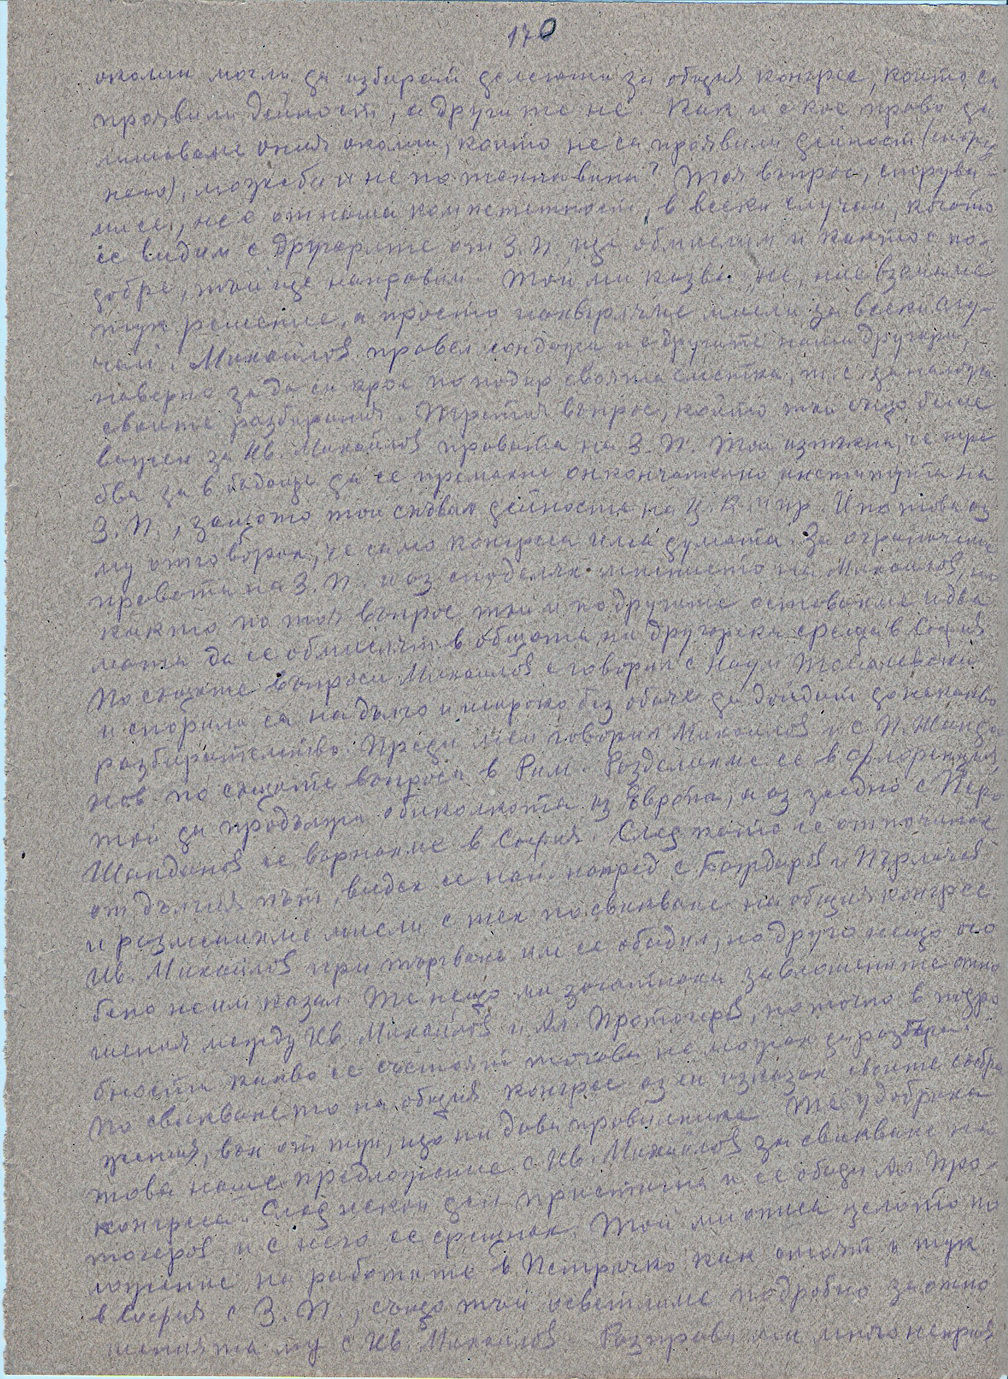 170
околии могли да избират делегати за общия конгрес, които са
проявили дейност, а другите не. Как и с кое право да
лишаваме ония околии, които не са проявили дейност
може би и не по тяхна вина? Тоя въпрос,
не е от наша компетентност, в всеки случай, когато
се видим с другарите от З. П. ще обмислим и както е по-
добре, тъй ще направим. Той ми казва, не, ние взимаме
тук решение, а просто нахвърляме мисли за всеки слу-
чай. Михайлов правел сондажи и с другите наши другари,
наверно за да си крои по подир своята сметка, т. е. да налага
своите разбирания. Третия въпрос, който тъй също беше
важен за Ив. Михайлов правата на З. П. Той изтъкна, че тря-
бва за в бъдаще да се премахне окончателно института на
З. П., защото той спъвал дейноста на Ц. К. и пр. И по това аз
му отговорих, че само конгреса има думата. За ограничение
правата на З. П. и аз споделях мнението на Михайлов, но
както по тоя въпрос, тъй и по другите оставаше идва
мата да се обмислят в общата ни другарска среща в София
По същите въпроси Михайлов е говорил с Наум Томалевски
и спорили са на дълго и широко без обаче да дойдат до някакво
разбирателство. Преди мен говорил Михайлов и с П. Шанда
нов по същите въпроси в Рим. Разделихме се в Флоренция,
той да продължи обиколката из Европа, а аз заедно с Петър
Шанданов се върнахме в София. След като се отпочинах
от дългия път, видях се най-напред с Баждаров и Пърличев
и разменихме мисли с тях по свикване на общия конгрес.
Ив. Михайлов при тръгване им се обадил, но друго нещо осо
бено не им казал. Те нещо ми загатнаха за влошените отно
шения между Ив. Михайлов и Ал. Протогеров, но точно в подро
бности какво се състоят то това не можах да разбера.
По свикването на общия конгрес аз им изказах своите собра
жения, вън от туй, що ни дава правилника. Те удобриха
това наше предложение с Ив. Михайлов за свикване на
конгреса. След некой ден пристигна и се обади Ал. Про-
тогеров и с него се срещнах. Той ми описа целото по
ложение на работите в Петричко как стоят и тук
в София с З. П., също тъй осветли ме подробно за отно
шенията му с Ив. Михайлов. Разправи ми много неприя